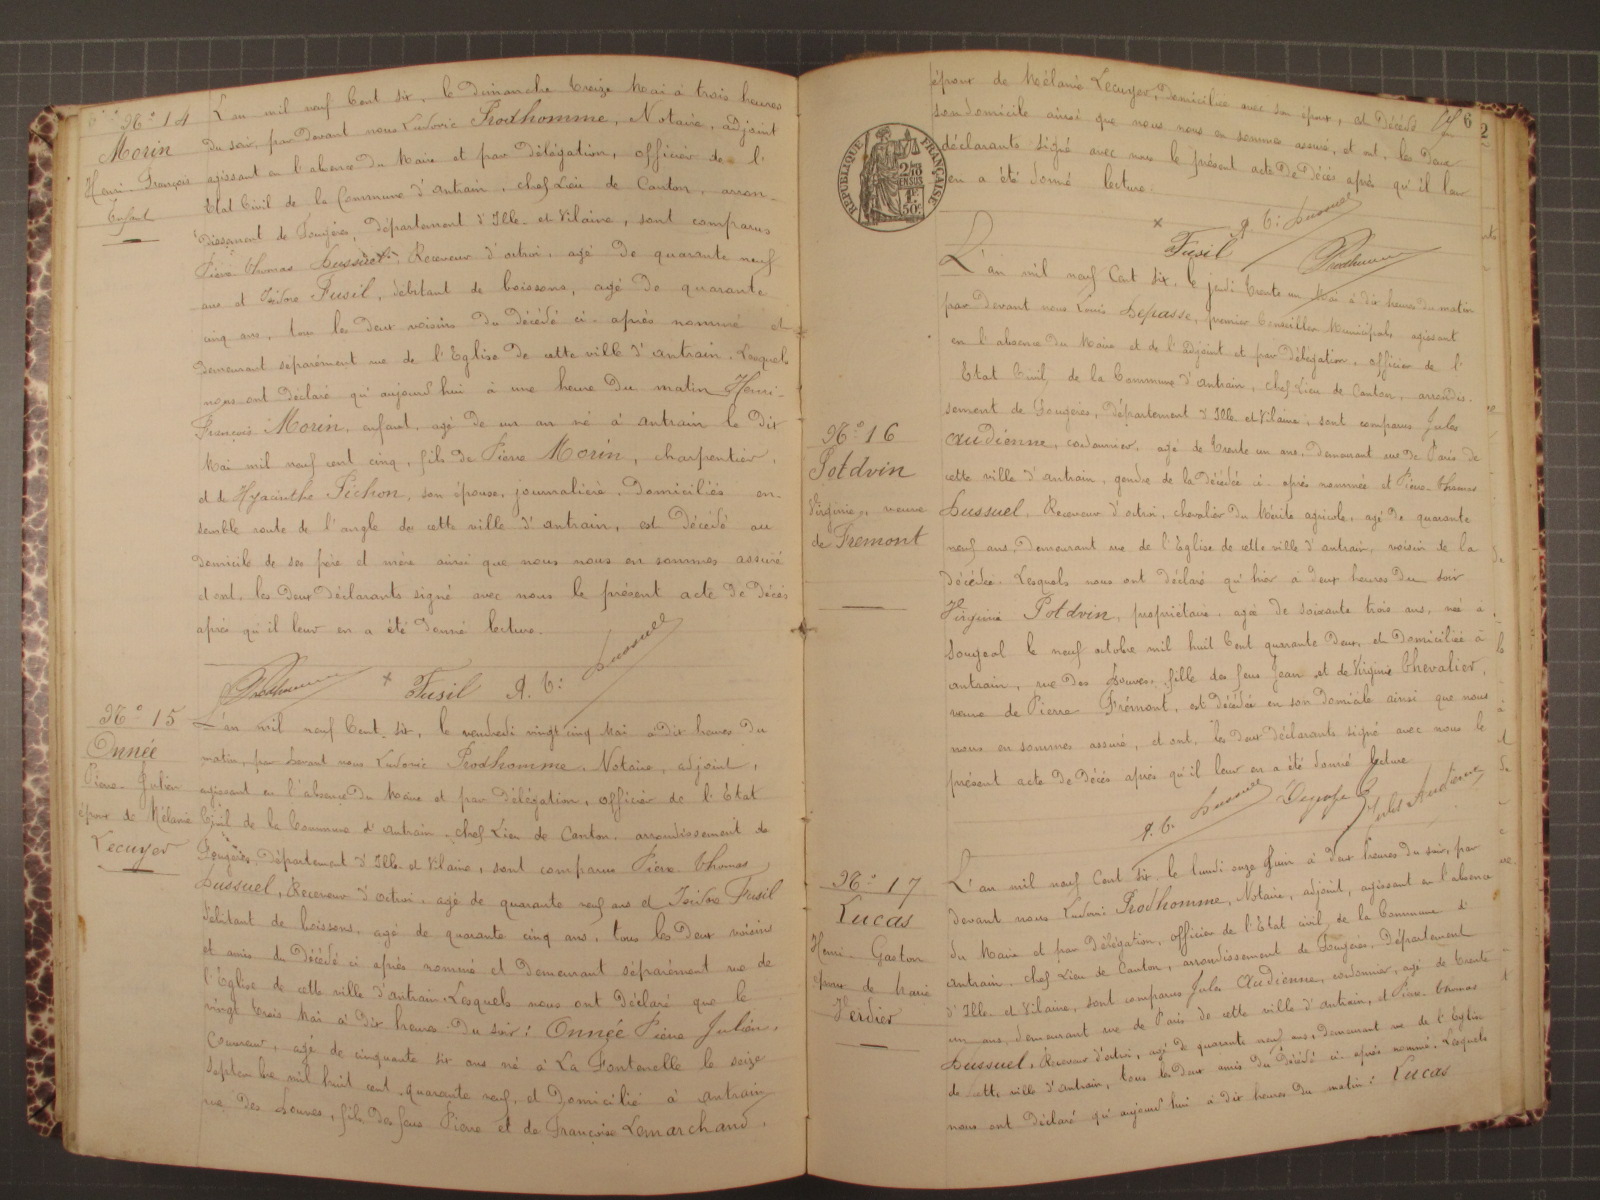 N° 14
Morin
Henri-François
Enfant
L'an mil neuf Cent six, le dimanche treize Mai à trois heures
du soir, par devant nous Ludovic Prodhomme, Notaire, adjoint
agissant en l'absence du Maire et par délégation, officier de l'
Etat Civil de la Commune d'Antrain, chef Lieu de Canton, arron-
dissement de Fougères, département d'Ille-et-Vilaine, sont comparus
Pierre-Thomas Dussuel, Receveur d'octroi, agé de quarante neuf
ans et Isidore Fusil, débitant de boissons, agé de quarante
cinq ans, tous les deux voisins du décédé ci-après nommé et
demeurant séparément rue de l'Eglise de cette ville d'antrain. Lesquels
nous ont déclaré qu'aujourd'hui à une heure du matin Henri-
François Morin, enfant, agé de un an né à antrain le dix
Mai mil neuf cent cinq, fils de Pierre Morin, charpentier,
et de Hyacinthe Pichon, son épouse, journalière, domiciliés en-
semble route de l'angle de cette ville d'antrain, est décédé au
domicile de ses père et mère ainsi que nous nous en sommes assuré
et ont, les deux déclarants signé avec nous le présent acte de décès
après qu'il leur en a été donné lecture.
Prodhomme Fusil P. T. Dussuel
N° 15
Onnée
Pierre-Julien
époux de Mélanie
Lecuyer
L'an mil neuf Cent six, le vendredi vingt cinq Mai à dix heures du
matin, par devant nous Ludovic Prodhomme, Notaire, adjoint,
agissant en l'absence du Maire et par délégation, officier de l'Etat
Civil de la Commune d'antrain, chef Lieu de Canton, arrondissement de
Fougères, département d'Ille-et-Vilaine, sont comparus Pierre-Thomas
Dussuel, Receveur d'octroi, agé de quarante neuf ans et Isidore Fusil
débitant de boissons, agé de quarante cinq ans, tous les deux voisins
et amis du décédé ci après nommé et demeurant séparément rue de
l'Eglise de cette ville d'antrain. Lesquels nous ont déclaré que le
vingt trois Mai à dix heures du soir: Onnée Pierre Julien,
Couvreur, agé de cinquante six ans né à La Fontenelle le seize
Septembre mil huit cent quarante neuf, et domicilié à antrain
rue des Douves, fils des feus Pierre et de Françoise Lemarchand,
6
2
époux de Mélanie Lecuyer, domiciliée avec son époux, est décédé
son domicile ainsi que nous nous en sommes assuré, et ont, les deux
déclarants signé avec nous le présent acte de décès après qu'il leur
en a été donné lecture.
RÉPUBLIQUE FRANÇAISE
Fusil P. T. Dussuel Prodhomme
N° 16
Potdvin
Virginie, veuve
de Fremont
L'an mil neuf Cent six, le jeudi trente un Mai à dix heures du matin
par devant nous Louis Depasse, premier Conseiller Municipal, agissant
en l'absence du Maire et de l'adjoint et par délégation, officier de l'
Etat Civil, de la Commune d'antrain, chef Lieu de Canton, arrondis-
sement de Fougères, département d'Ille-et-Vilaine, sont comparus Jules
Audienne, cordonnier, agé de trente un ans, demeurant rue de Paris de
cette ville d'antrain, gendre de la décédée ci-après nommée et Pierre-Thomas
Dussuel, Receveur d'octroi, chevalier du Mérite agricole, agé de quarante
neuf ans, demeurant rue de l'Eglise de cette ville d'antrain, voisin de la
décédée. Lesquels nous ont déclaré qu'hier à deux heures du soir
Virginie Potdvin, propriétaire, agée de soixante trois ans, née à
Sougeal le neuf octobre mil huit Cent quarante deux, et domiciliée à
antrain, rue des Douves, fille des feus Jean et de Virginie Chevalier,
veuve de Pierre Frémont, est décédée en son domicile ainsi que nous
nous en sommes assuré, et ont, les deux déclarants signé avec nous le
présent acte de décès après qu'il leur en a été donné lecture
P. T. Dussuel Depasse Jules Audienne
N° 17
Lucas
Henri-Gaston
époux de Marie
Verdier
L'an mil neuf Cent six, le lundi onze Juin à deux heures du soir, par
devant nous Ludovic Prodhomme, Notaire, adjoint, agissant en l'absence
du Maire et par délégation, officier de l'Etat civil, de la Commune d'
antrain, chef Lieu de Canton, arrondissement de Fougères, Département
d'Ille-et-Vilaine, sont comparus Jules Audienne, cordonnier, agé de trente
un ans, demeurant rue de Paris de cette ville d'antrain, et Pierre-Thomas
Dussuel, Receveur d'octroi, agé de quarante neuf ans, demeurant rue de l'Eglise
de cette ville d'antrain, tous les deux amis du décédé ci-après nommé. Lesquels
nous ont déclaré qu'aujourd'hui à dix heures du matin: Lucas